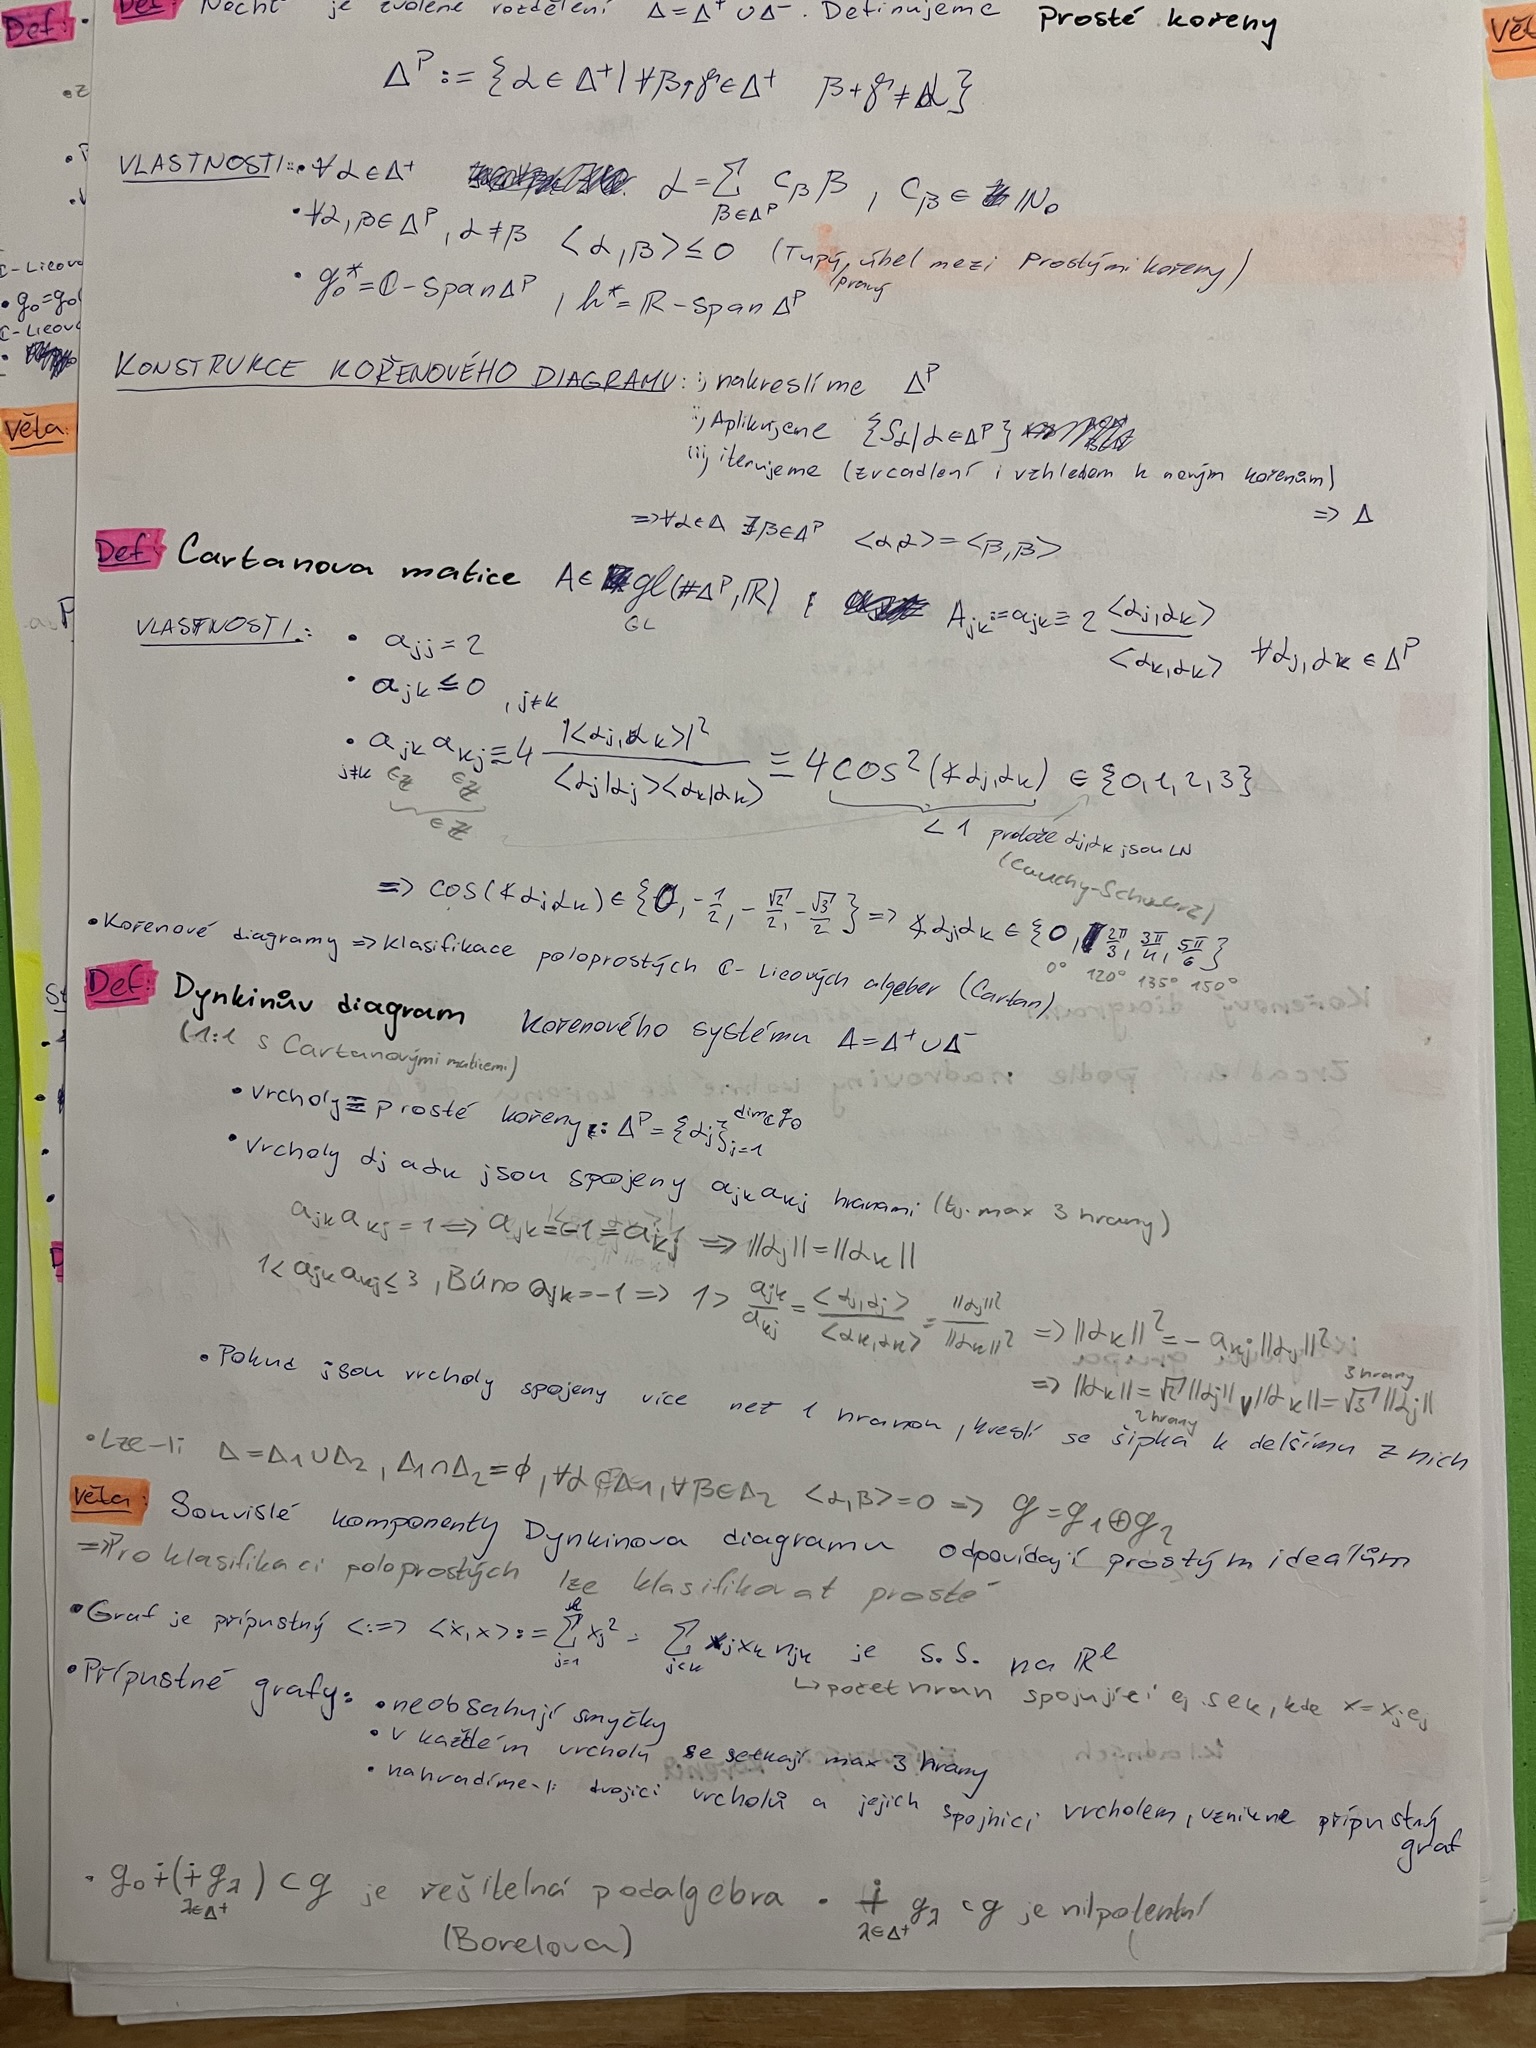 Def: Nechť je zvolené rozdělení Δ=Δ⁺∪Δ⁻. Definujeme Prosté kořeny
Δᴾ := {α∈Δ⁺|∀β,γ∈Δ⁺ β+γ≠α}
VLASTNOSTI: • ∀α∈Δ⁺ α=∑_{β∈Δᴾ} c_β β, c_β ∈ ℕ₀
• ∀α,β∈Δᴾ, α≠β <α,β>≤0 (Tupý/pravý úhel mezi Prostými kořeny)
• g₀*=ℂ-span Δᴾ, h*=ℝ-span Δᴾ
KONSTRUKCE KOŘENOVÉHO DIAGRAMU: i, nakreslíme Δᴾ
ii, Aplikujeme {S_α|α∈Δᴾ}
iii, iterujeme (zrcadlení i vzhledem k novým kořenům)
=> Δ
=>∀α∈Δ ∃β∈Δᴾ <α,α>=<β,β>
Def: Cartanova matice A∈ gl(#Δᴾ,ℝ) ; A_jk:=a_jk≡2 <α_j,α_k>/<α_k,α_k> ∀α_j,α_k∈Δᴾ
GL
VLASTNOSTI: • a_jj=2
• a_jk≤0, j≠k
• a_jk a_kj≡4 |<α_j,α_k>|²/<α_j|α_j><α_k|α_k> ≡ 4cos²(∢α_j,α_k) ∈{0,1,2,3}
j≠k ∈ℤ ∈ℤ
∈ℤ
<1 protože α_j,α_k jsou LN
(Cauchy-Schwarz)
=> cos(∢α_jα_k)∈{0,-1/2,-√2/2,-√3/2} => ∢α_jα_k ∈{0, 2π/3, 3π/4, 5π/6}
0° 120° 135° 150°
• Kořenové diagramy => klasifikace poloprostých ℂ-Lieových algeber (Cartan)
Def: Dynkinův diagram kořenového systému Δ=Δ⁺∪Δ⁻
(1:1 s Cartanovými maticemi)
• Vrcholy≡prosté kořeny: Δᴾ={α_j}_{j=1}^{dim_ℂ g₀}
• Vrcholy α_j a α_k jsou spojeny a_jk a_kj hranami (tj. max 3 hrany)
a_jk a_kj=1 <=> a_jk=-1=a_kj => ||α_j||=||α_k||
1<a_jk a_kj≤3, Búno a_jk=-1 => 1> a_jk/a_kj = <α_j,α_j>/<α_k,α_k> = ||α_j||²/||α_k||² => ||α_k||²=-a_kj||α_j||²
=> ||α_k||=√2||α_j|| ∨ ||α_k||=√3||α_j||
2 hrany 3 hrany
• Pokud jsou vrcholy spojeny více než 1 hranou, kreslí se šipka k delšímu z nich
• Lze-li Δ=Δ₁∪Δ₂, Δ₁∩Δ₂=∅, ∀α∈Δ₁, ∀β∈Δ₂ <α,β>=0 => g=g₁⊕g₂
Věta: Souvislé komponenty Dynkinova diagramu odpovídají prostým ideálům
=>Pro klasifikaci poloprostých lze klasifikovat prosté
• Graf je přípustný <:=> <x,x>:=∑_{j=1}^{l} x_j² - ∑_{j<k} x_j x_k n_jk je s.s. na ℝˡ
↳počet hran spojující e_j s e_k, kde x=x_j e_j
• Přípustné grafy: • neobsahují smyčky
• v každém vrcholu se setkají max 3 hrany
• nahradíme-li dvojici vrcholů a jejich spojnici vrcholem, vznikne přípustný graf
• g₀∔(∔_{λ∈Δ⁺} g_λ)⊂g je řešitelná podalgebra • ∔_{λ∈Δ⁺} g_λ⊂g je nilpotentní
(Borelova)
Def:
Věta:
C-Lieova
• g₀=g₀
C-Lieova
Vět